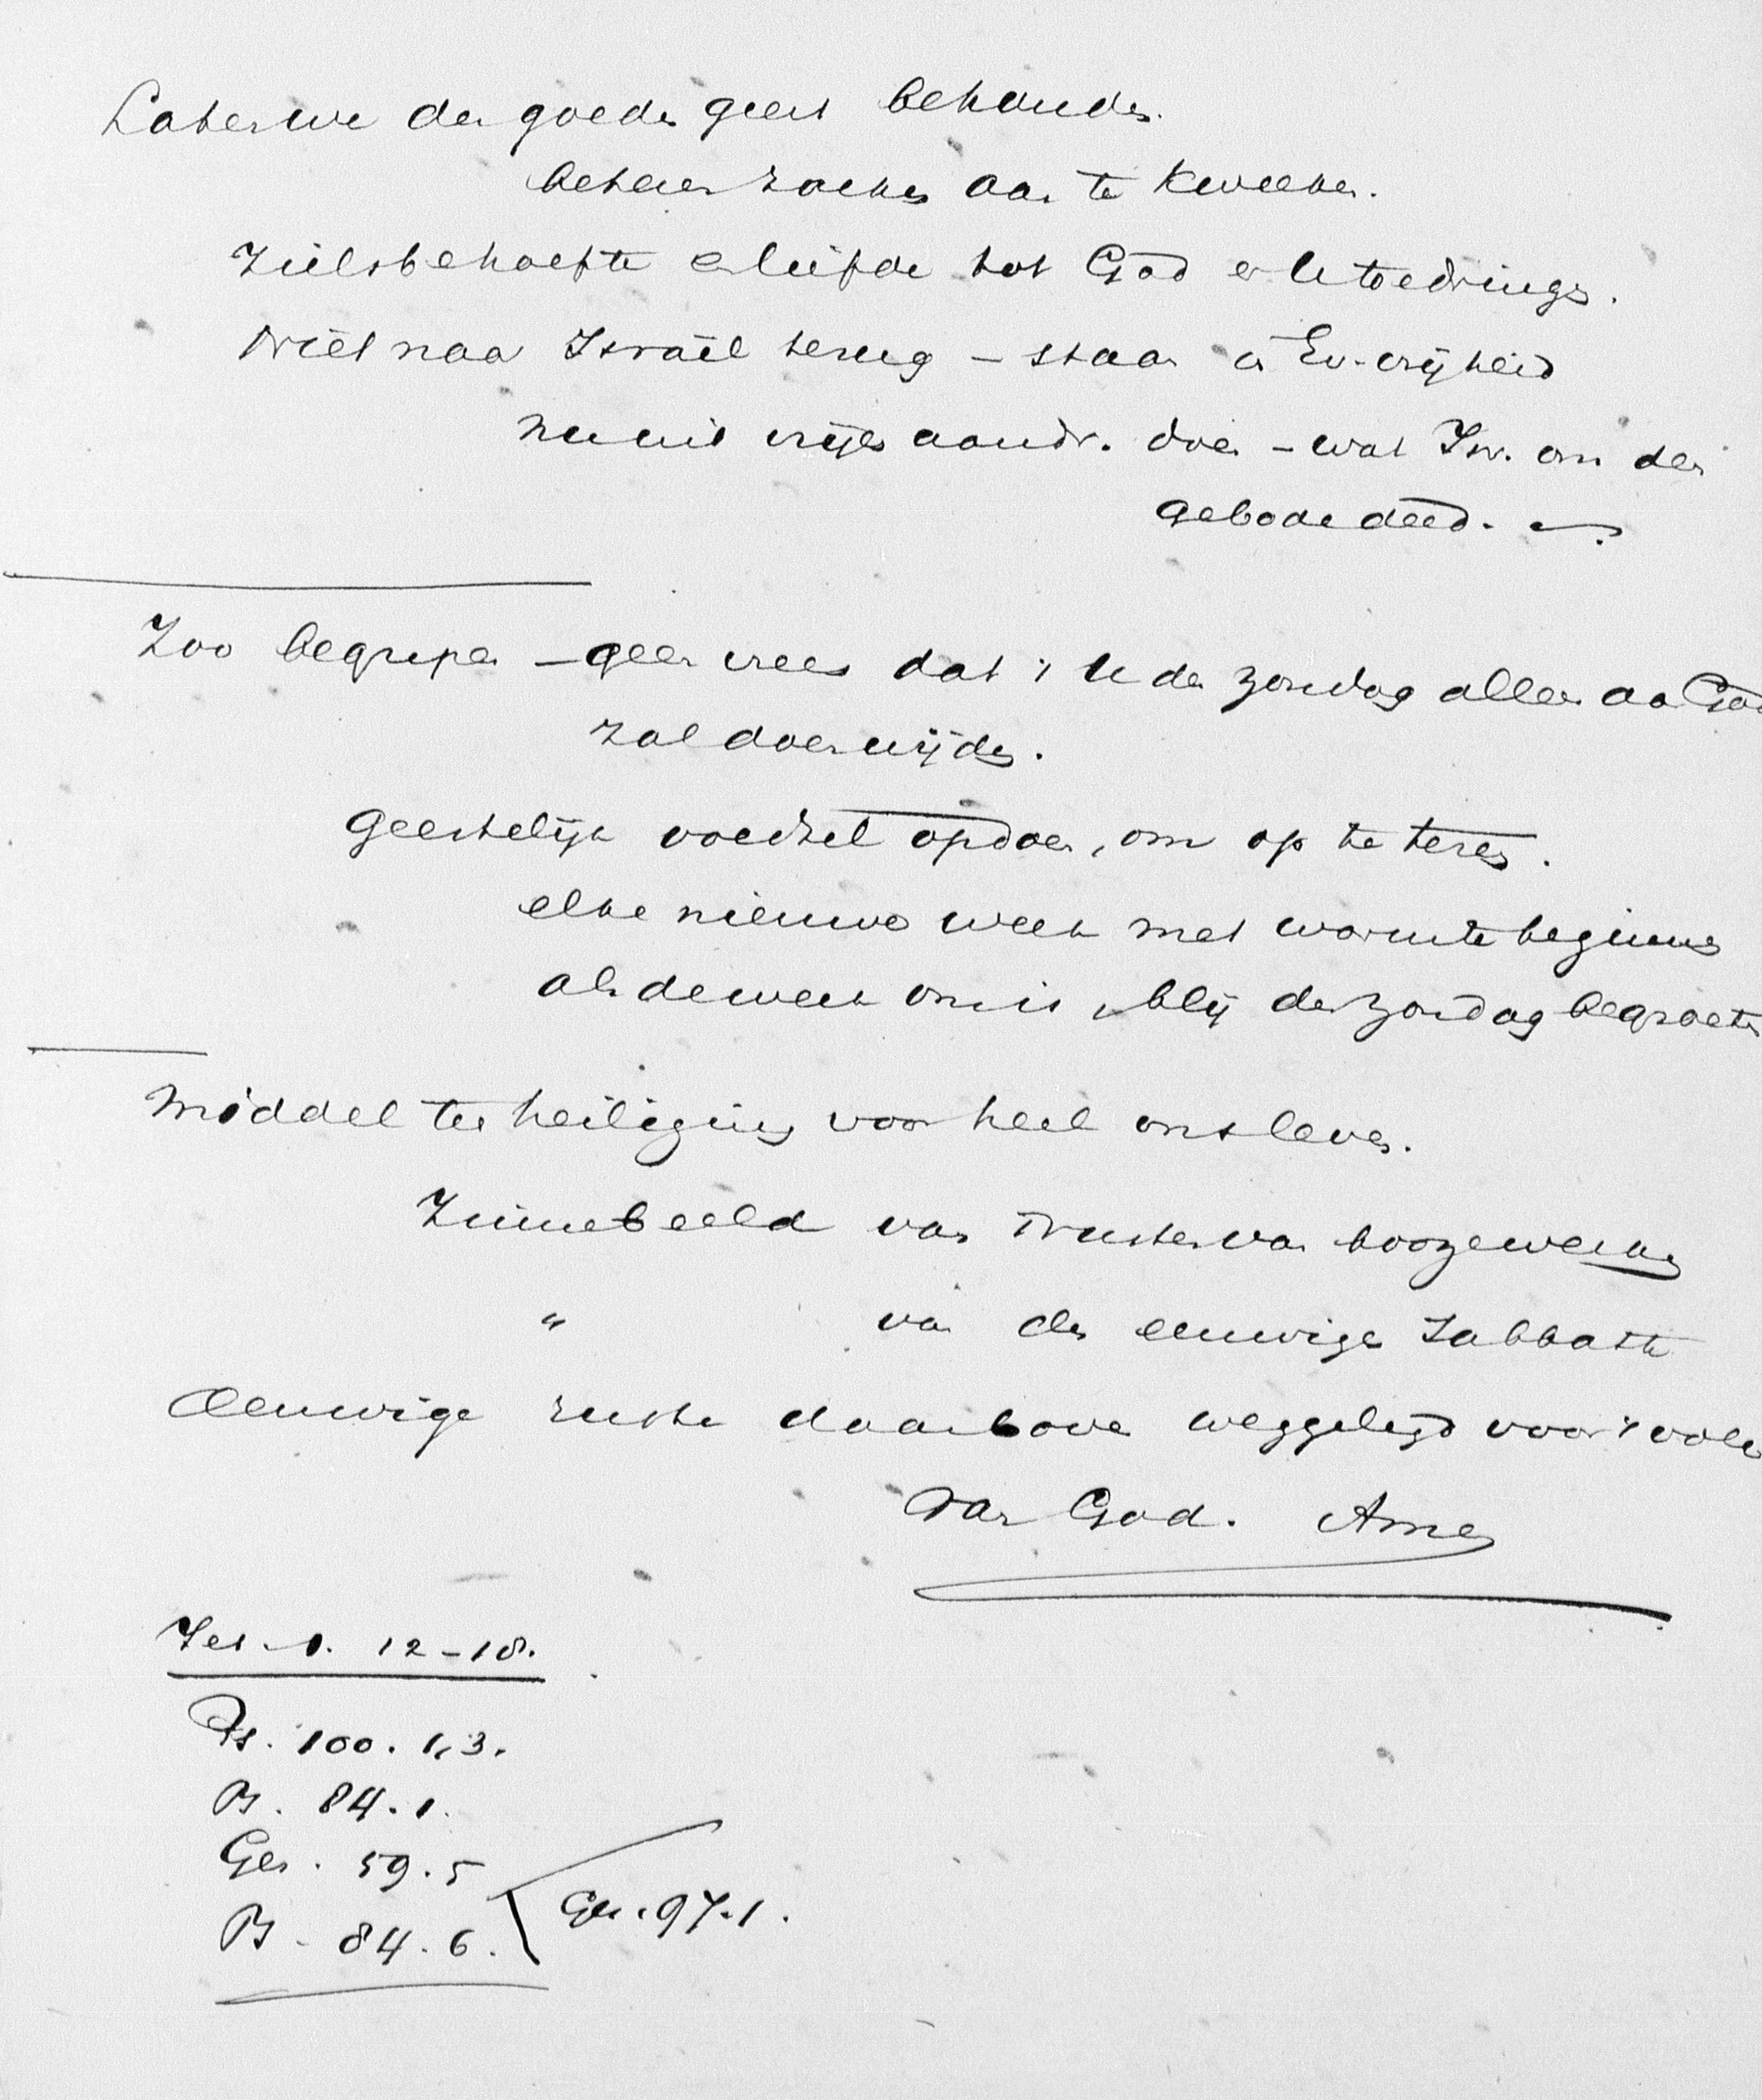 Laten we den goeden geest behouden.
beteren zoeken aan te kweeken.
Zielsbehoefte en liefde tot God er u toe dringen.
Niet naar Israël terug – staan in Ev. vrijheid
nu uit vrijen aandr. doen – wat Isr. om den
gebode deed. –
Zoo begrepen – geen vrees dat 't u den zondag alleen aan God
zal doen wijden.
Geestelijk voedsel opdoen, om op te teren.
elke nieuwe week met warmte beginnen
als de week om is, blij den zondag begroeten
Middel ter heiliging voor heel ons leven.
Zinnebeeld van 't rusten van booze werken
" van den eeuwigen Sabbath
Eeuwige ruste daarboven weggelegd voor 't volk
van God. Amen
Jes. 1. 12–18.
Ps. 100. 1, 3.
Ps. 84. 1.
Gez. 59. 5
Ps. 84. 6. Gez. 97. 1.